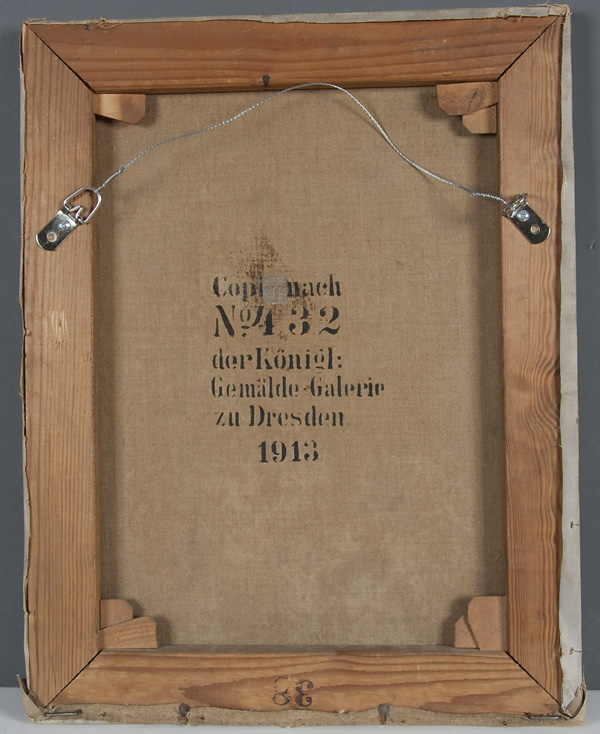 Copie nach
No 432
der Königl:
Gemälde-Galerie
zu Dresden
1913
38